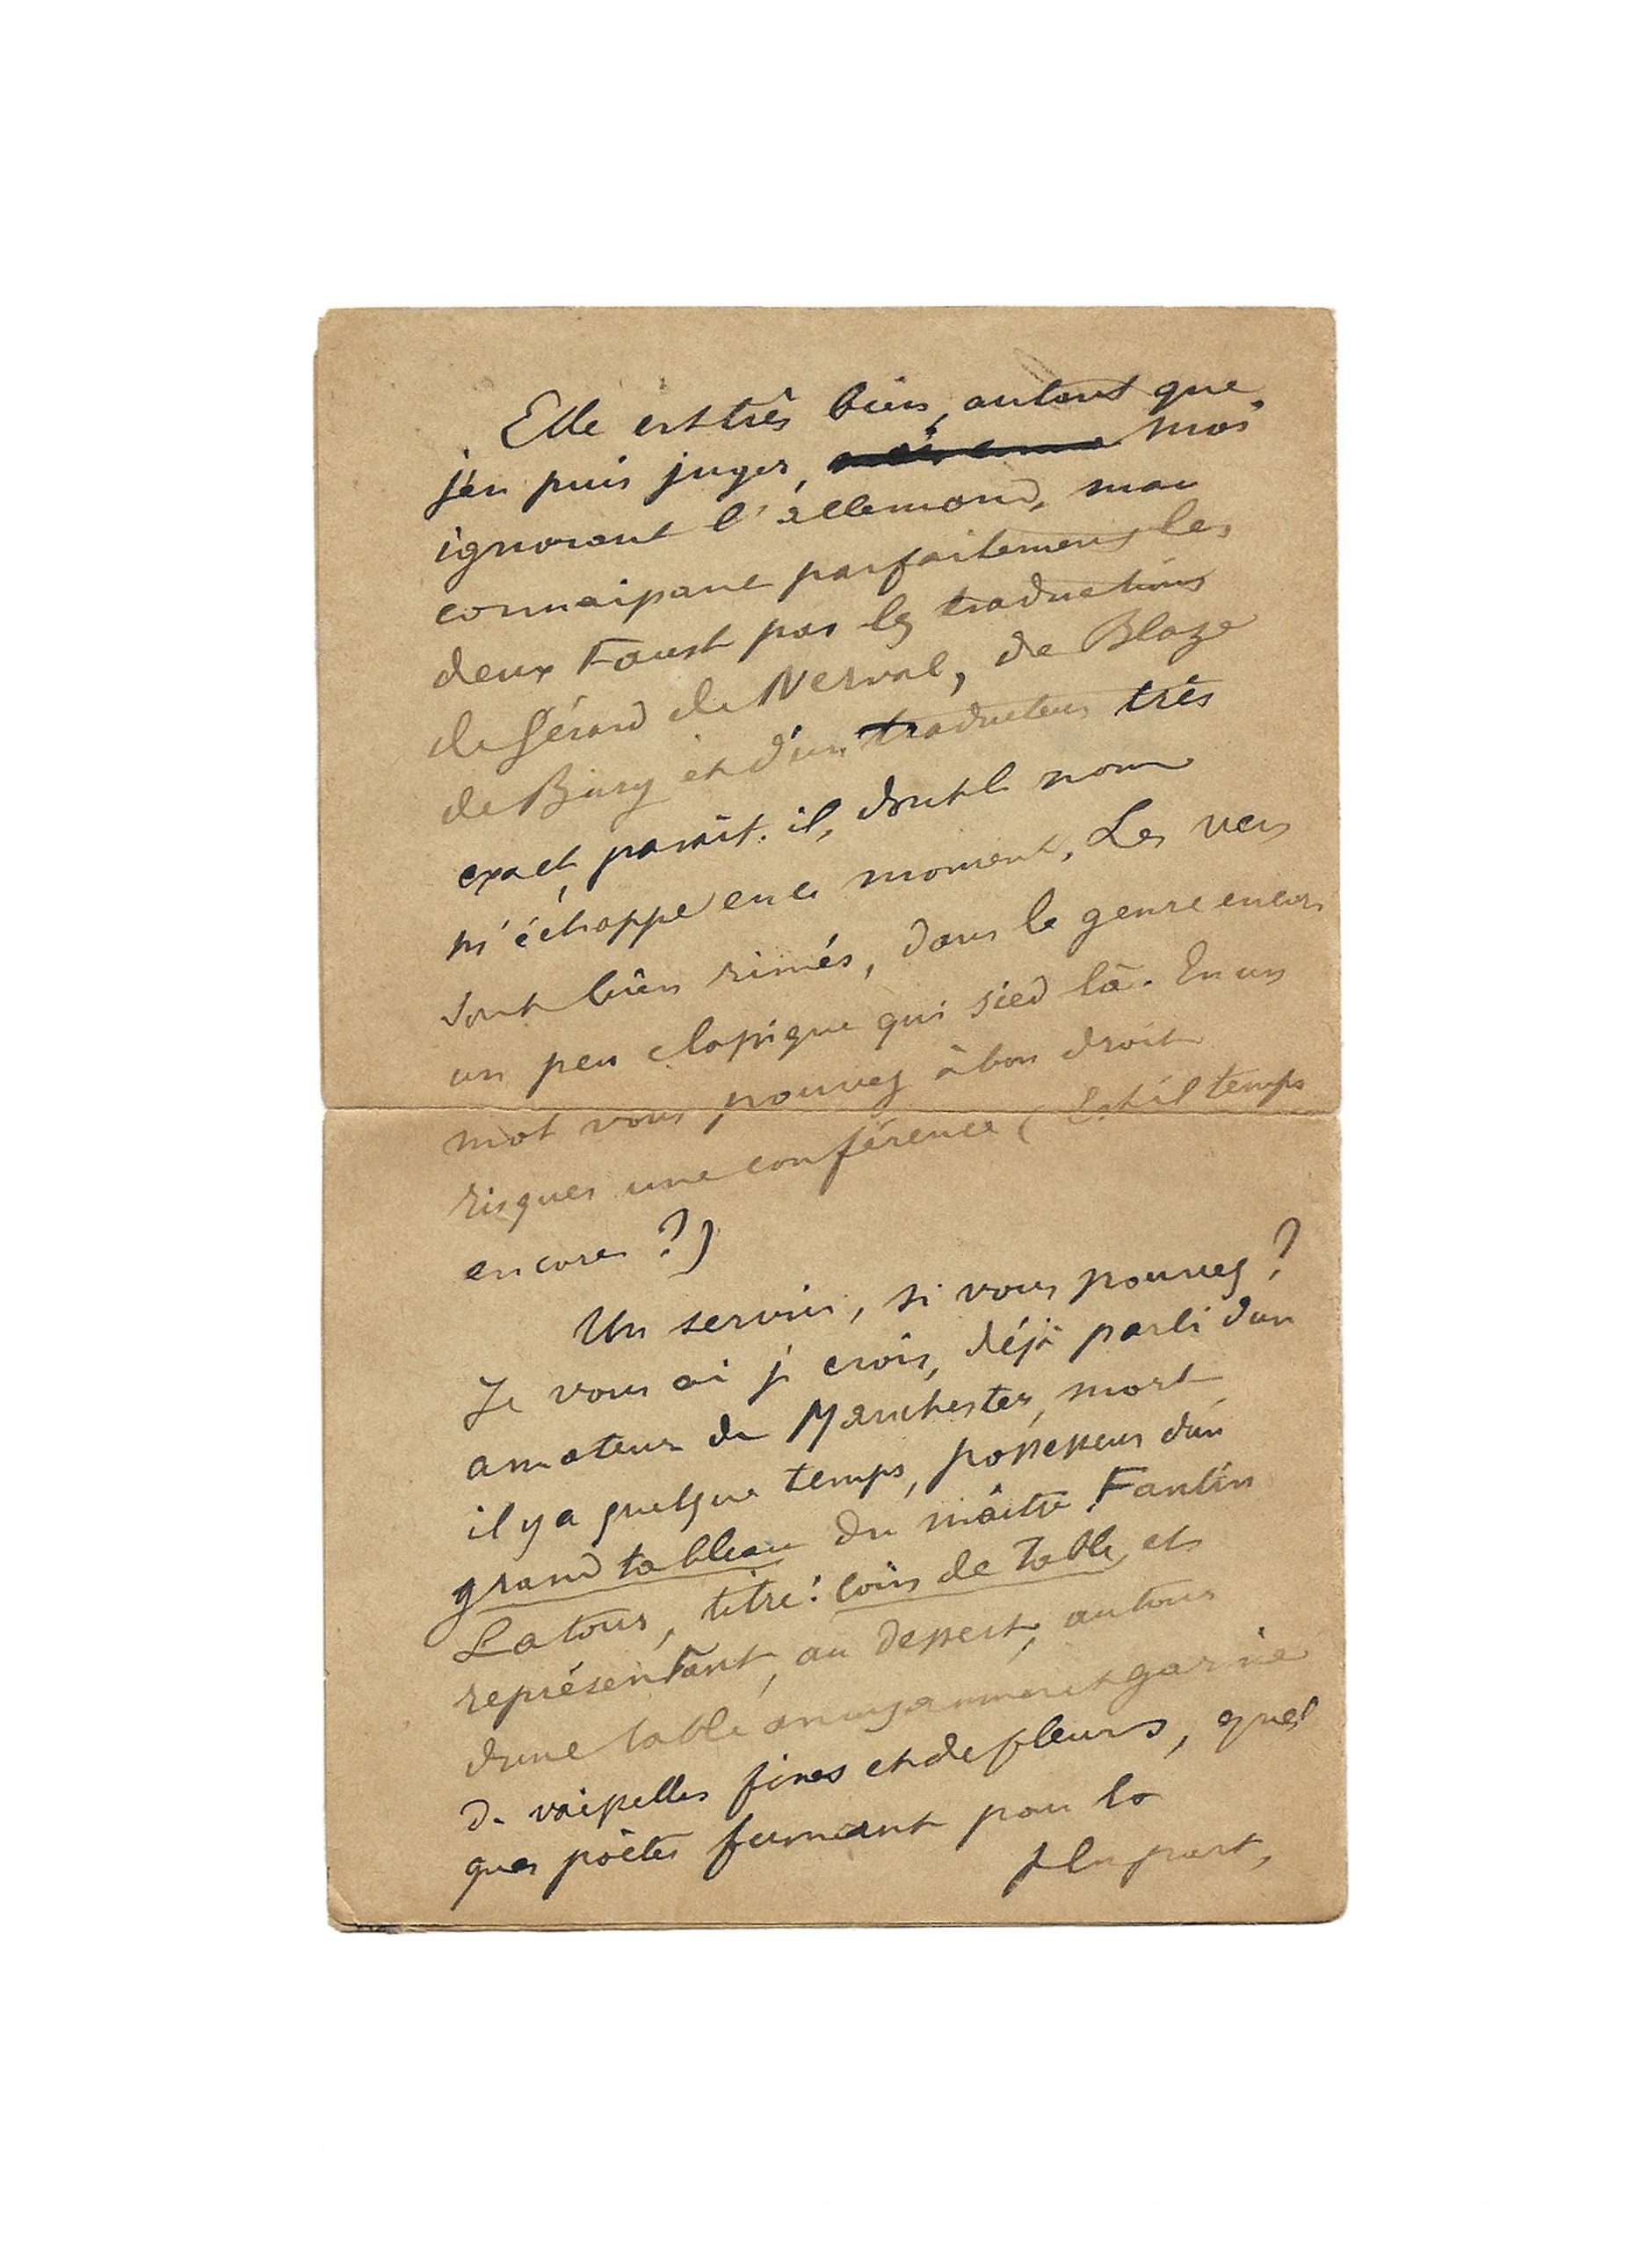 Elle est très bien, autant que
j'en puis juger, moi
ignorant l'allemand, mais
connaissant parfaitement les
deux Faust par les traductions
de Gérard de Nerval, de Blaze
de Bury et d'un traducteur très
exact, paraît-il, dont le nom
m'échappe en ce moment. Les vers
sont bien rimés, dans le genre encor
un peu classique qui sied là. En un
mot vous pouvez à bon droit
risquer une conférence (Est-il temps
encore ?)
Un service, si vous pouvez ?
Je vous ai je crois, déjà parlé d'un
amateur de Manchester, mort
il y a quelque temps, possesseur d'un
grand tableau du maître Fantin
Latour, titre : Coin de table, et
représentant, au dessert, autour
d'une table garnie
de vaisselles fines et de fleurs, quel
ques poètes fumant pour la
plupart,